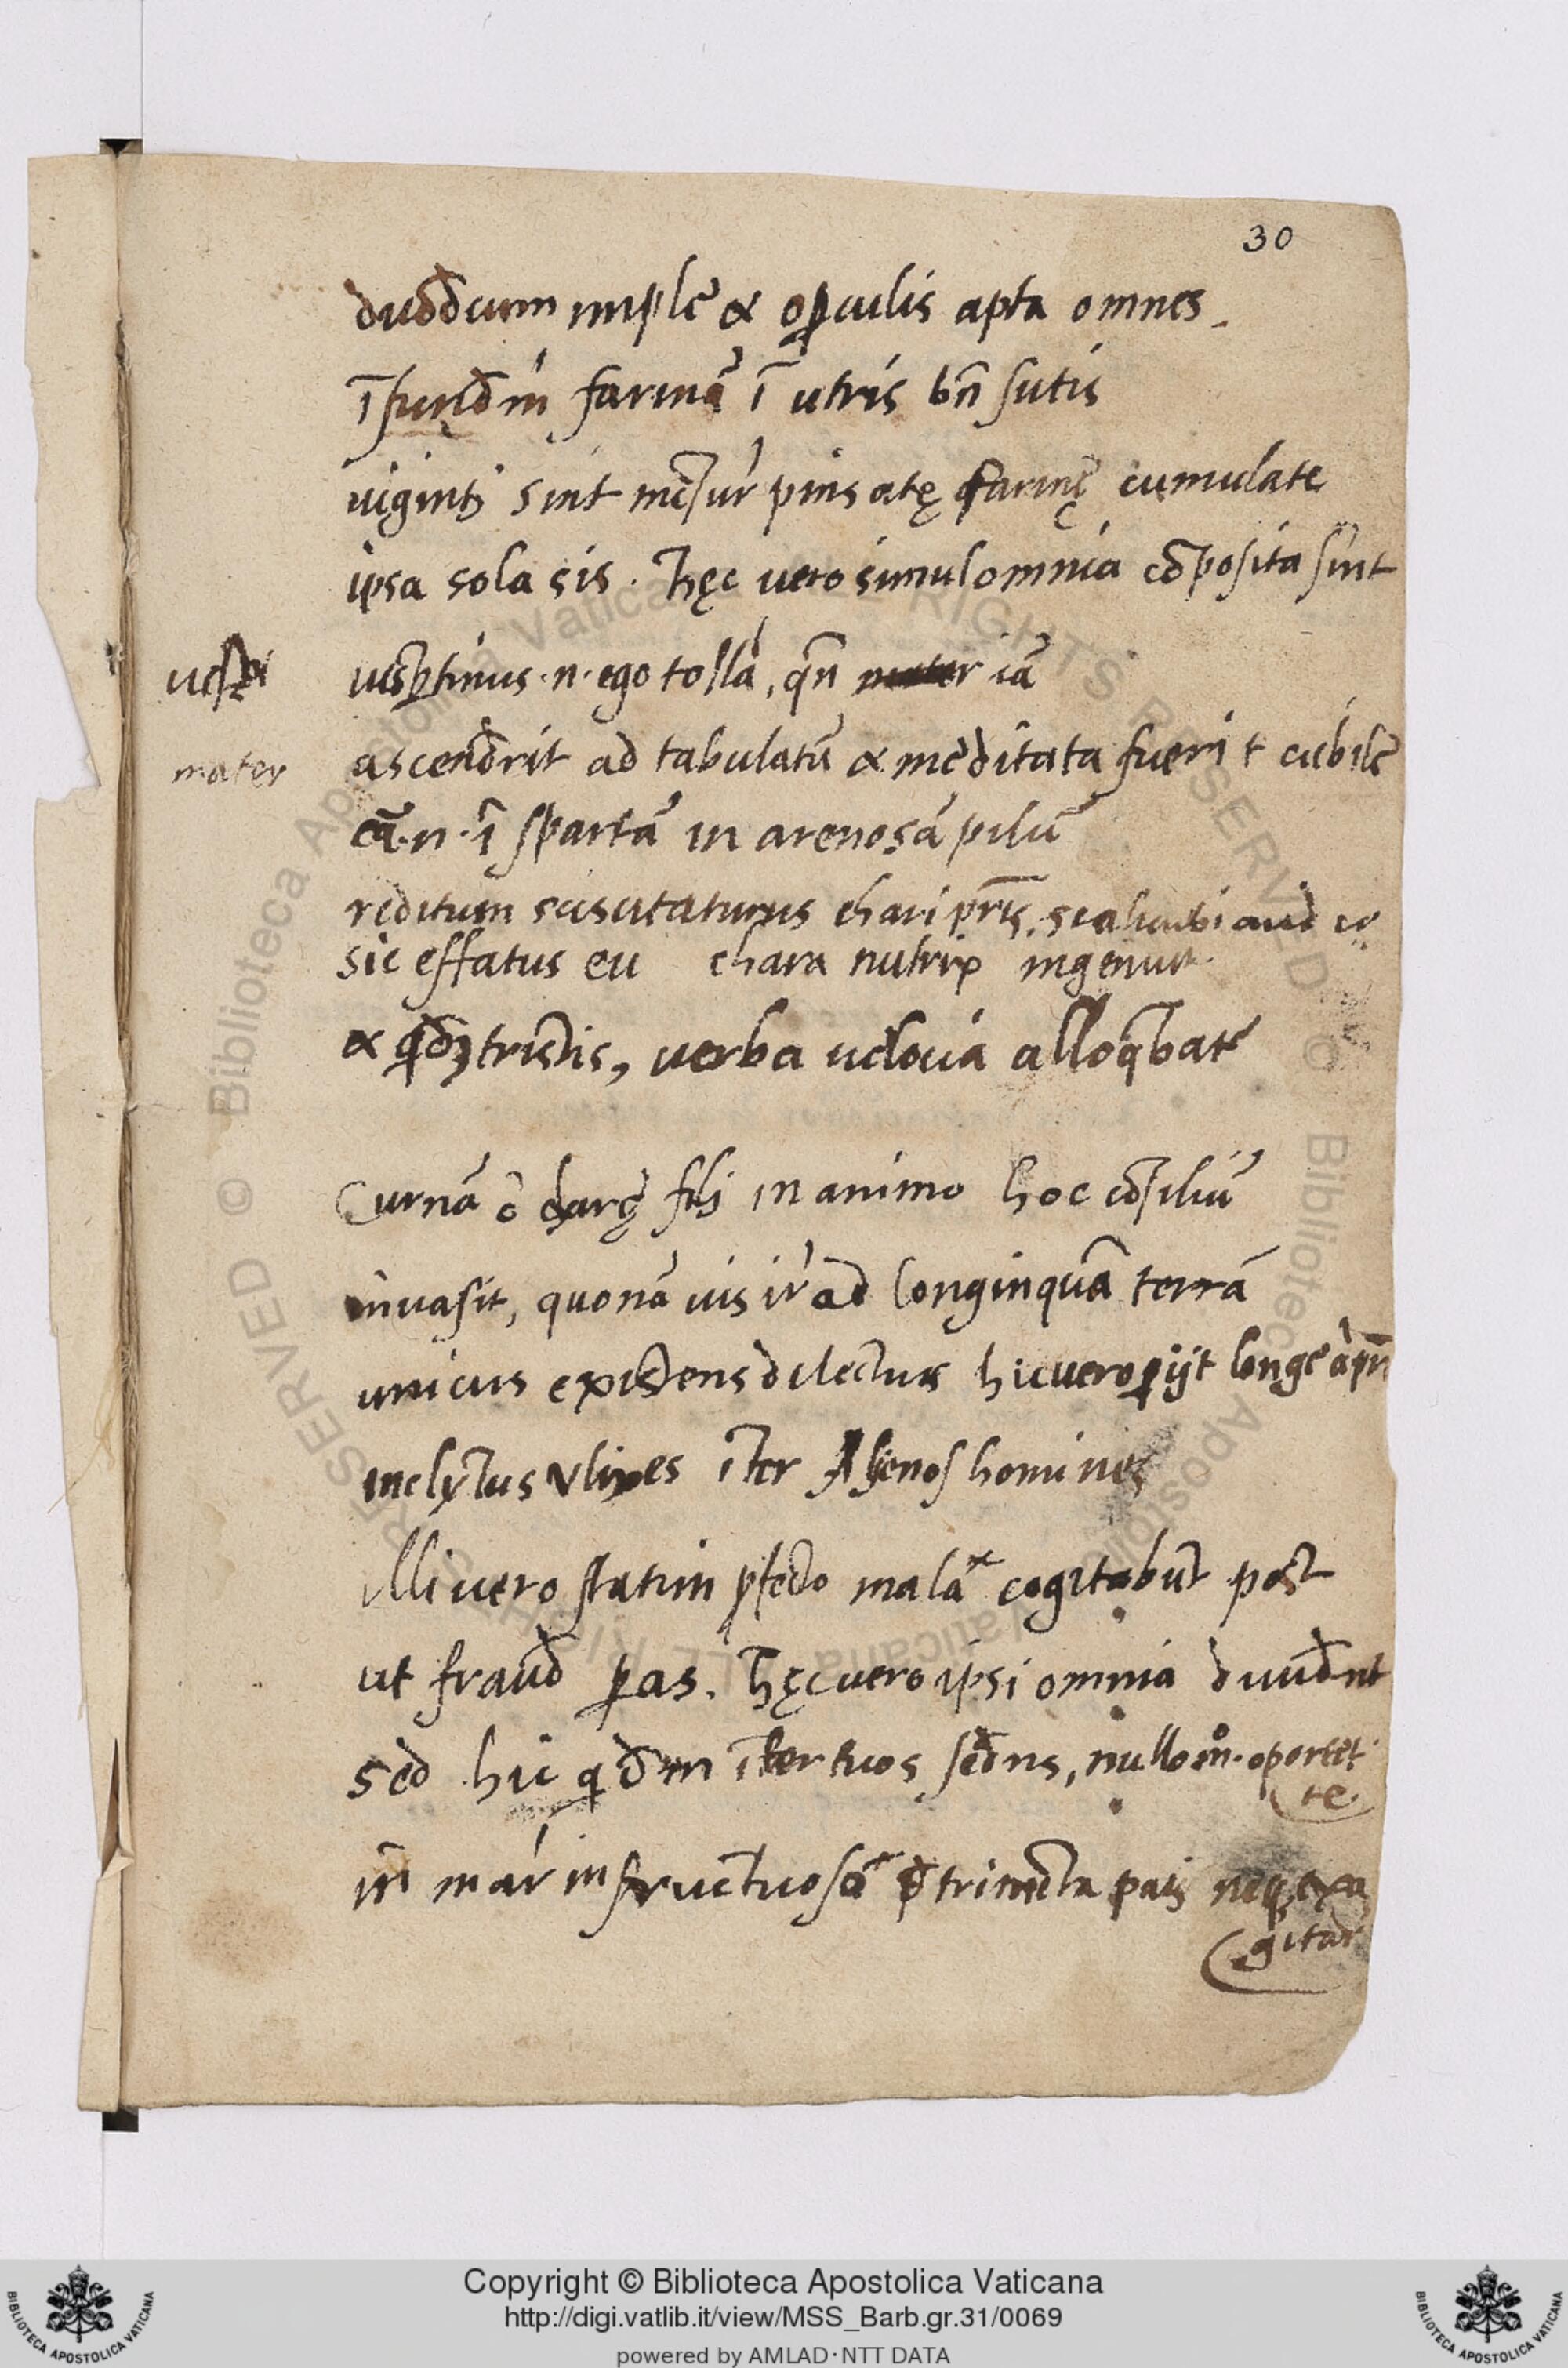 30
duodcum imple & oꝑculis apta omnes.
ĩfund m̃ farinã ĩ utris bñ sutis
uiginti sint mẽsur pinsatę farinę cumulate
ipsa sola sis. hęc uero simul omnia cõposita sint
uesp̱tinus .n. ego tollã, qñ iã
mater
ascendrit ad tabulatũ & meditata fuerit cubile
eã .n. ĩ spartã in arenosã pilũ
reditum sciscitaturus chari pr̃is. sicalicubi aud
sic effatus eu chara nutrix ingemuit
& qdȝ tristis, uerba uelocia alloq̃bat
Curnã õ charę fili in animo hoc cõsiliũ
inuasit, quonã uis ir ad longinquã terrã
unicus existens dilectus hic uero ꝑijt longe à pr̃
inclytus Vlixes ĩter Alienos homines
illi uero statim ꝓfecto malã cogitabũt post
ut fraud ꝑas. hęc uero ipsi omnia diuidnt
sed hic qdm ĩter tuos sedns, nullo m̊. oportet
te
ĩ mar infructuosã dtrimẽta pati neq̨ exa
gitar
Copyright © Biblioteca Apostolica Vaticana
http://digi.vatlib.it/view/MSS_Barb.gr.31/0069
powered by AMLAD·NTT DATA
BIBLIOTECA APOSTOLICA VATICANA
BIBLIOTECA APOSTOLICA VATICANA